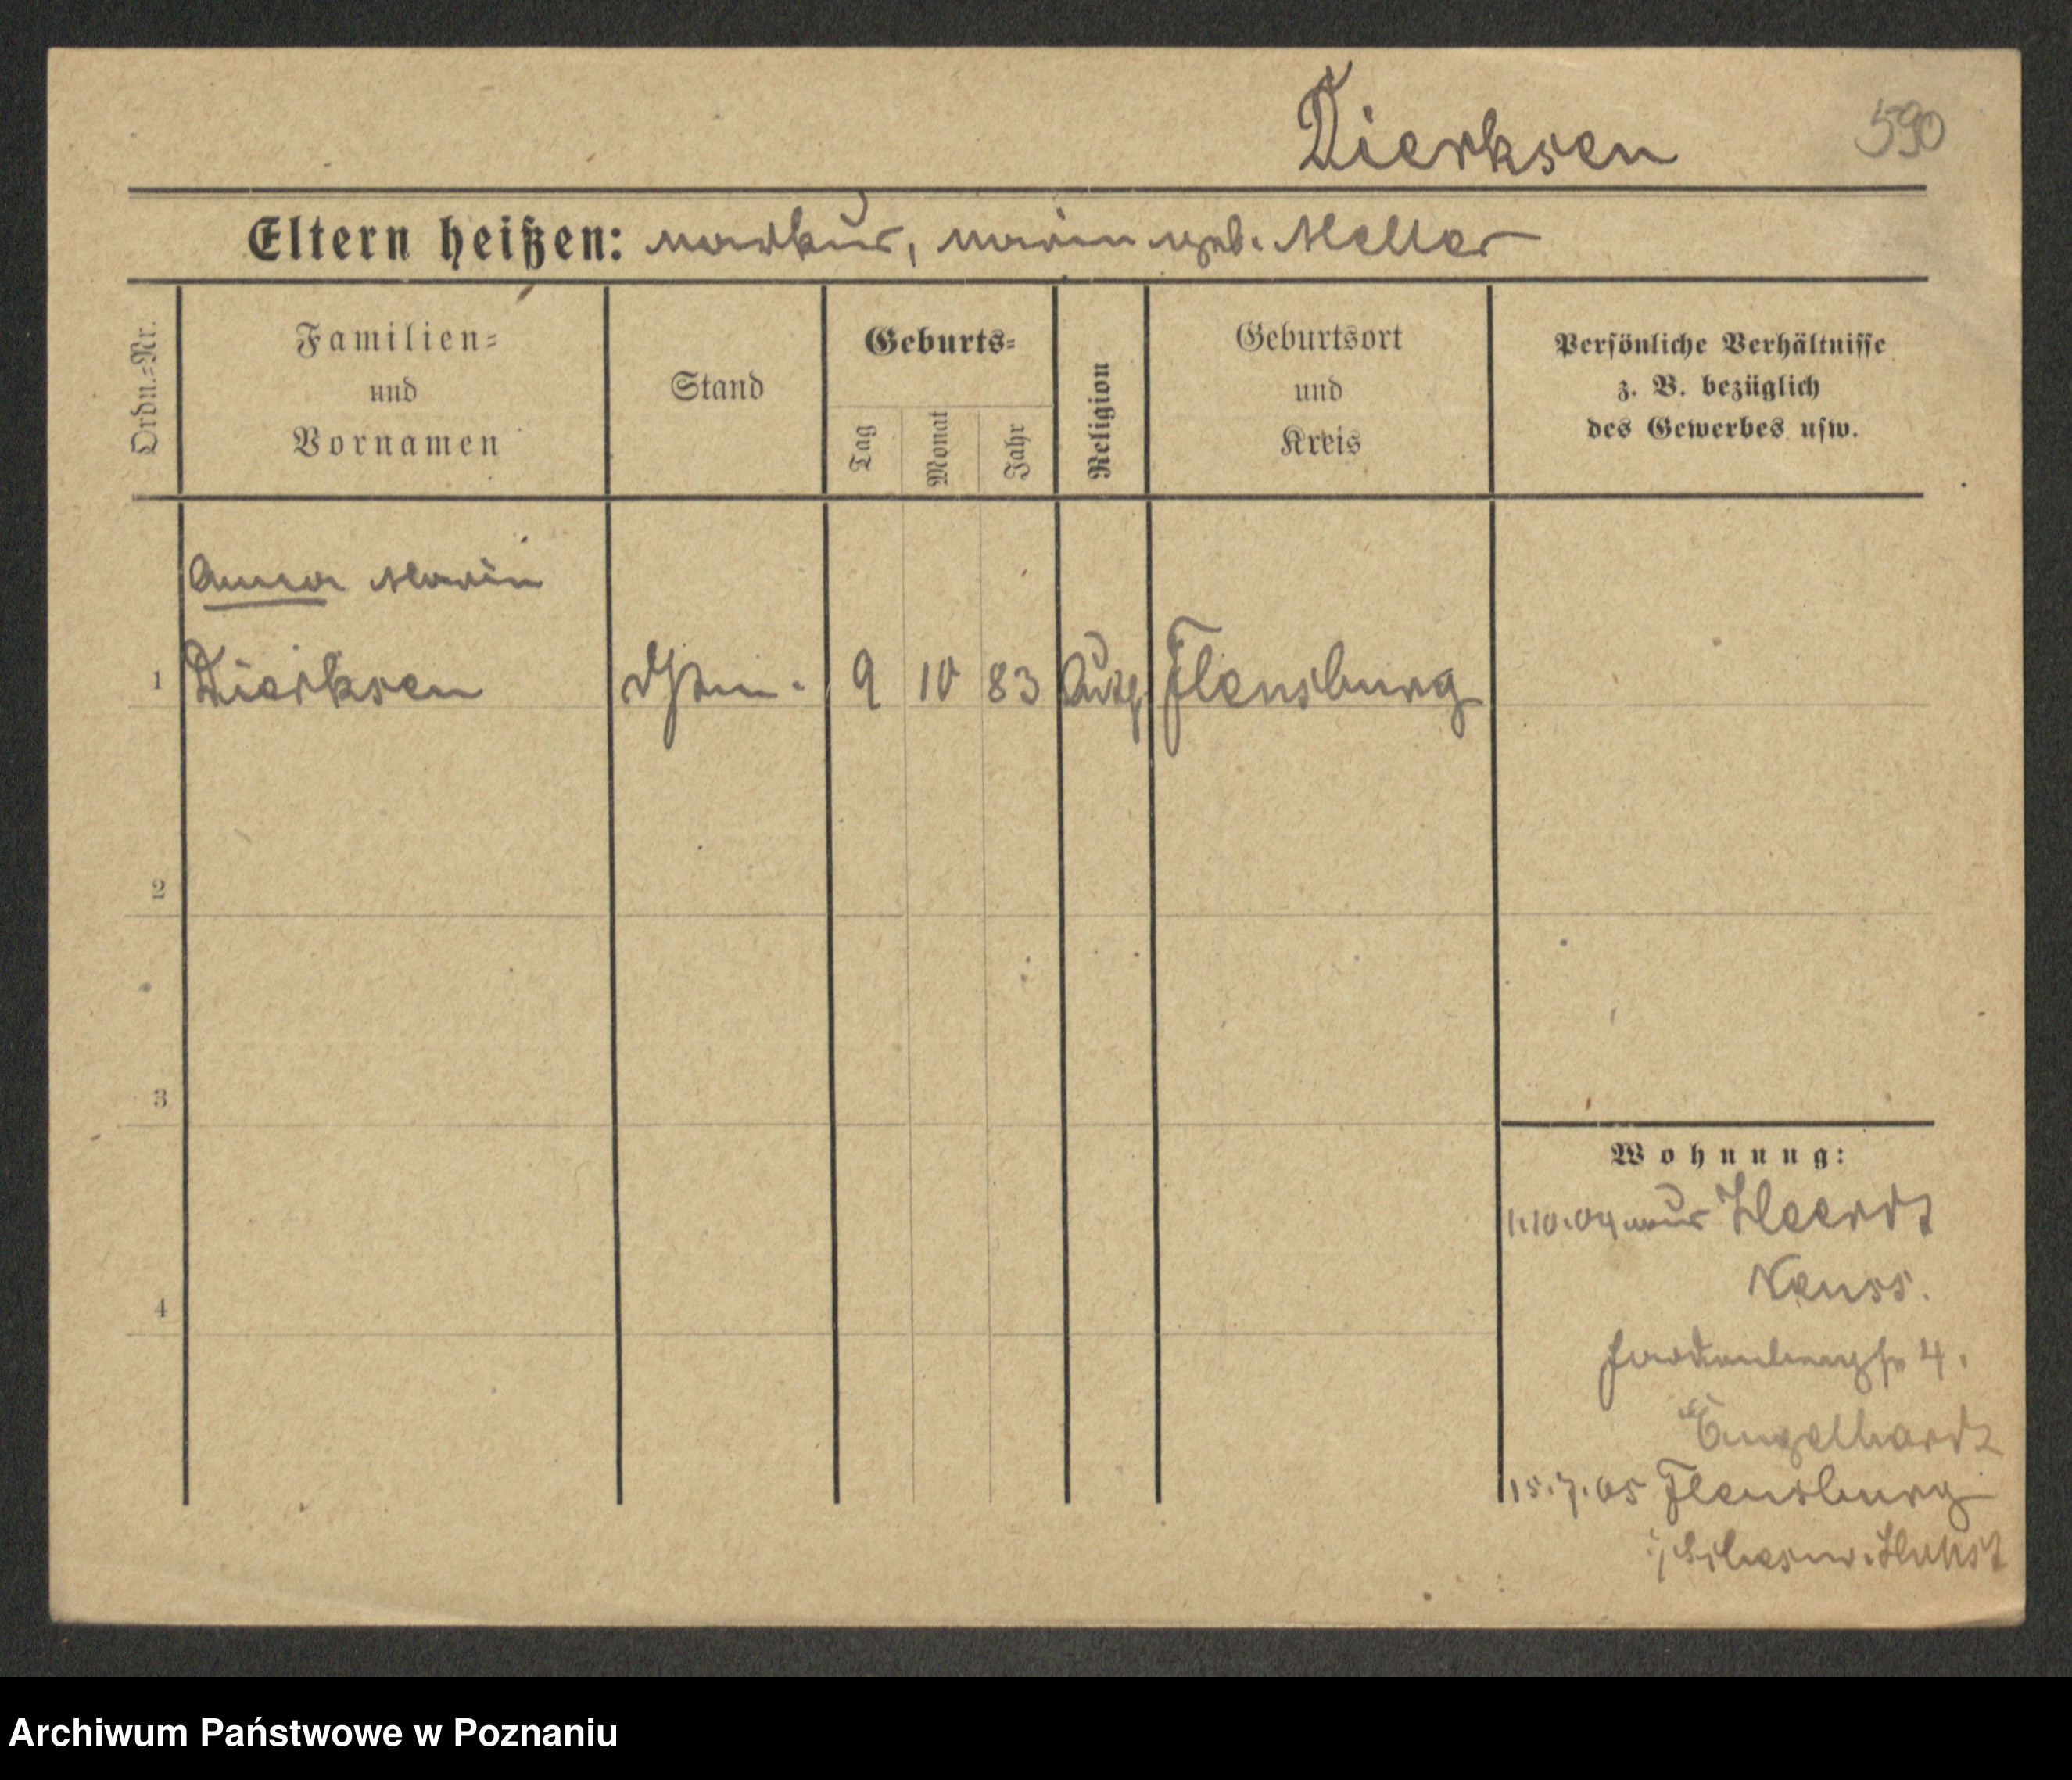 Dierksen 590
Eltern heißen: Markus, Marie geb. Möller
Ordn.-Nr.
Familien-
und
Vornamen
Stand
Geburts-
Tag
Monat
Jahr
Religion
Geburtsort
und
Kreis
Persönliche Verhältnisse
z. B. bezüglich
des Gewerbes usw.
Anna Marie
1 Dierksen 9 10 83 Flensburg
2
3
4
Wohnung:
1.10.04 aus Heerdt
Neuss.
4.
Engelhardt
15.7.05 Flensburg
Schlesw. Holst